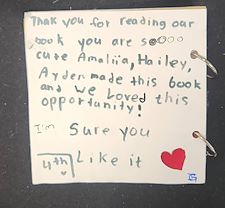 Thak you for reading our
book you are soooo
cute Amalia, Hailey,
Ayden made this book
and we Loved this
opportunity!
I'm Sure you
4th Like it